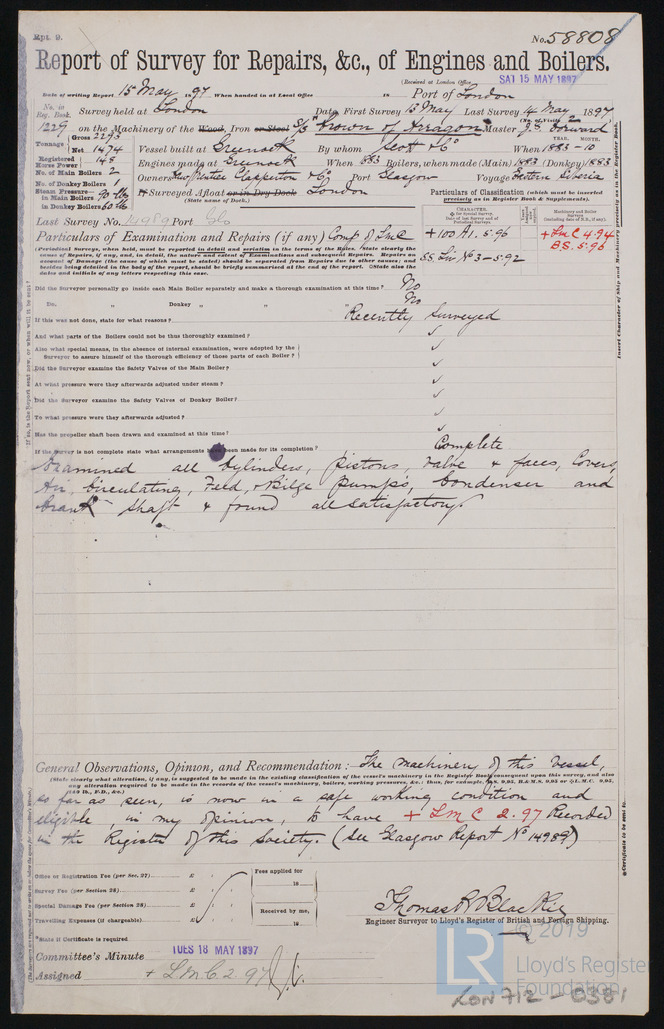 Rpt. 9.
No. 58808
Report of Survey for Repairs, &c., of Engines and Boilers.
(Received at London Office
SAT 15 MAY 1897
Date of writing Report 15 May 1897 When handed in at Local Office 18 Port of London
No. in Reg. Book. Survey held at London Date, First Survey 13 May Last Survey 14 May 1897
(No. of Visits 2)
1229 on the Machinery of the Wood, Iron or Steel S/S "Crown of Arragon" Master J. S. Dorward
Tonnage Gross 2293
Net 1474
Vessel built at Greenock By whom Scott & Co When 1883-10
YEAR. MONTH.
Registered Horse Power 148
Engines made at Greenock When 1883 Boilers, when made (Main) 1883 (Donkey) 1883
No. of Main Boilers 2
Owners Prentice Clapperton & Co Port Glasgow Voyage Eastern Siberia
No. of Donkey Boilers 1
Steam Pressure in Main Boilers 90 lbs
in Donkey Boilers 60 lbs
If Surveyed Afloat or in Dry Dock London
(State name of Dock.)
Particulars of Classification (which must be inserted precisely as in Register Book & Supplements).
Last Survey No. 14989 Port Gls
Particulars of Examination and Repairs (if any) Comp of LMC
+100A1. 5.96
+LMC 4.94
B.S. 5.96
SS Liv No 3 - 5.92
Did the Surveyor personally go inside each Main Boiler separately and make a thorough examination at this time? No
Do. " Donkey " " " No
If this was not done, state for what reasons? Recently Surveyed
And what parts of the Boilers could not be thus thoroughly examined?
Also what special means, in the absence of internal examination, were adopted by the Surveyor to assure himself of the thorough efficiency of those parts of each Boiler?
Did the Surveyor examine the Safety Valves of the Main Boiler?
At what pressure were they afterwards adjusted under steam?
Did the Surveyor examine the Safety Valves of Donkey Boiler?
To what pressure were they afterwards adjusted?
Has the propeller shaft been drawn and examined at this time?
If the Survey is not complete state what arrangements have been made for its completion? Complete
Examined all cylinders, pistons, valve & faces, covers,
Air, Circulating, Feed, & Bilge pumps, Condenser and
Crank shaft & found all satisfactory.
General Observations, Opinion, and Recommendation:- The machinery of this vessel,
(State clearly what alteration, if any, is suggested to be made in the existing classification of the vessel's machinery in the Register Book consequent upon this survey, and also
any alteration required to be made in the records of the vessel's machinery, boilers, working pressures, &c.: thus, for example, B.S. 9.95, B.&M.S. 9.95 or +L.M.C. 9.95,
so far as seen, is now in a safe working condition and
eligible, in my opinion, to have + LMC 2.97 Recorded
in the Register of this Society. (See Glasgow Report No 14989)
Office or Registration Fee (per Sec. 27) £ : :
Survey Fee (per Section 28) £ : :
Special Damage Fee (per Section 28) £ : :
Travelling Expenses (if chargeable) £ : :
Fees applied for
18
Received by me,
18
Thomas R Blackie
Engineer Surveyor to Lloyd's Register of British and Foreign Shipping.
*State if Certificate is required
Committee's Minute TUES 18 MAY 1897
Assigned + LMC 2.97
© 2019
LR
Lloyd's Register
Foundation
LON 712 - 0381